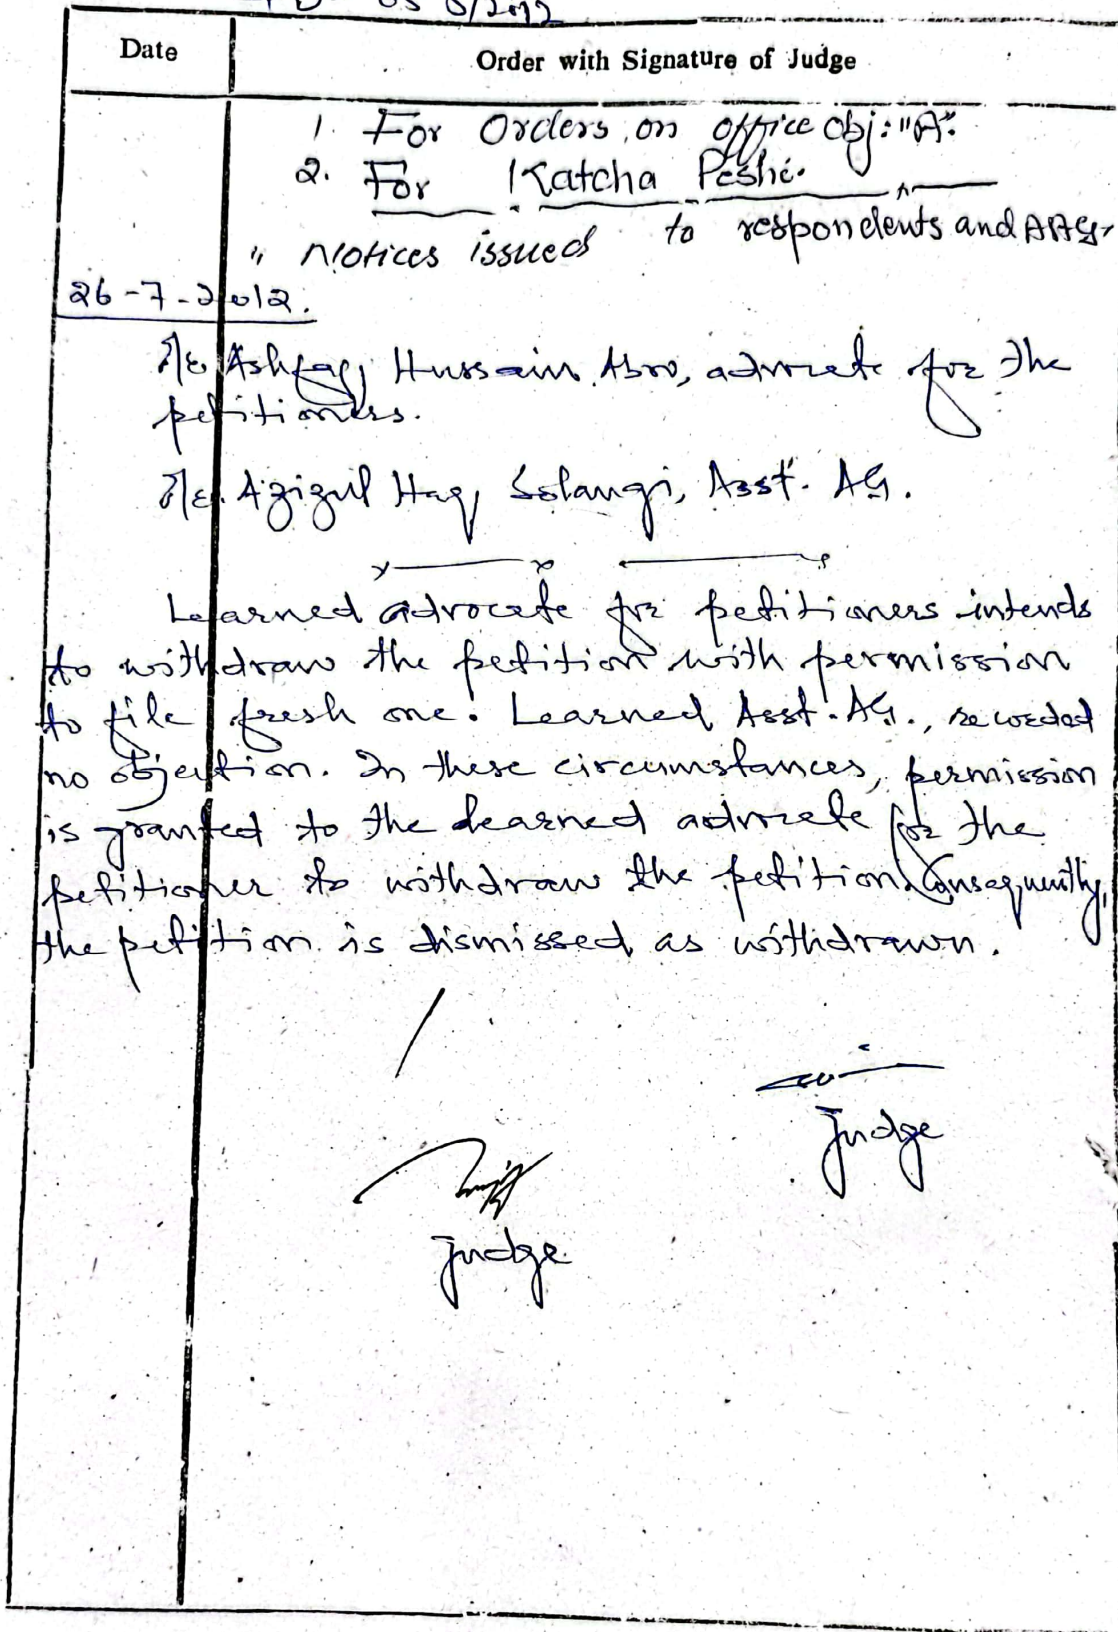 /2012
Date
Order with Signature of Judge
1. For Orders on office obj: "A".
2. For Katcha Peshi.
" Notices issued to respondents and AAG.
26-7-2012.
Mr. Ashfaq Hussain Abro, advocate for the
petitioners.
Mr. Azizul Haq Solangi, Asst. AG.
Learned advocate for petitioners intends
to withdraw the petition with permission
to file fresh one. Learned Asst. AG., recorded
no objection. In these circumstances, permission
is granted to the learned advocate for the
petitioner to withdraw the petition. Consequently,
the petition is dismissed as withdrawn.
Judge
Judge